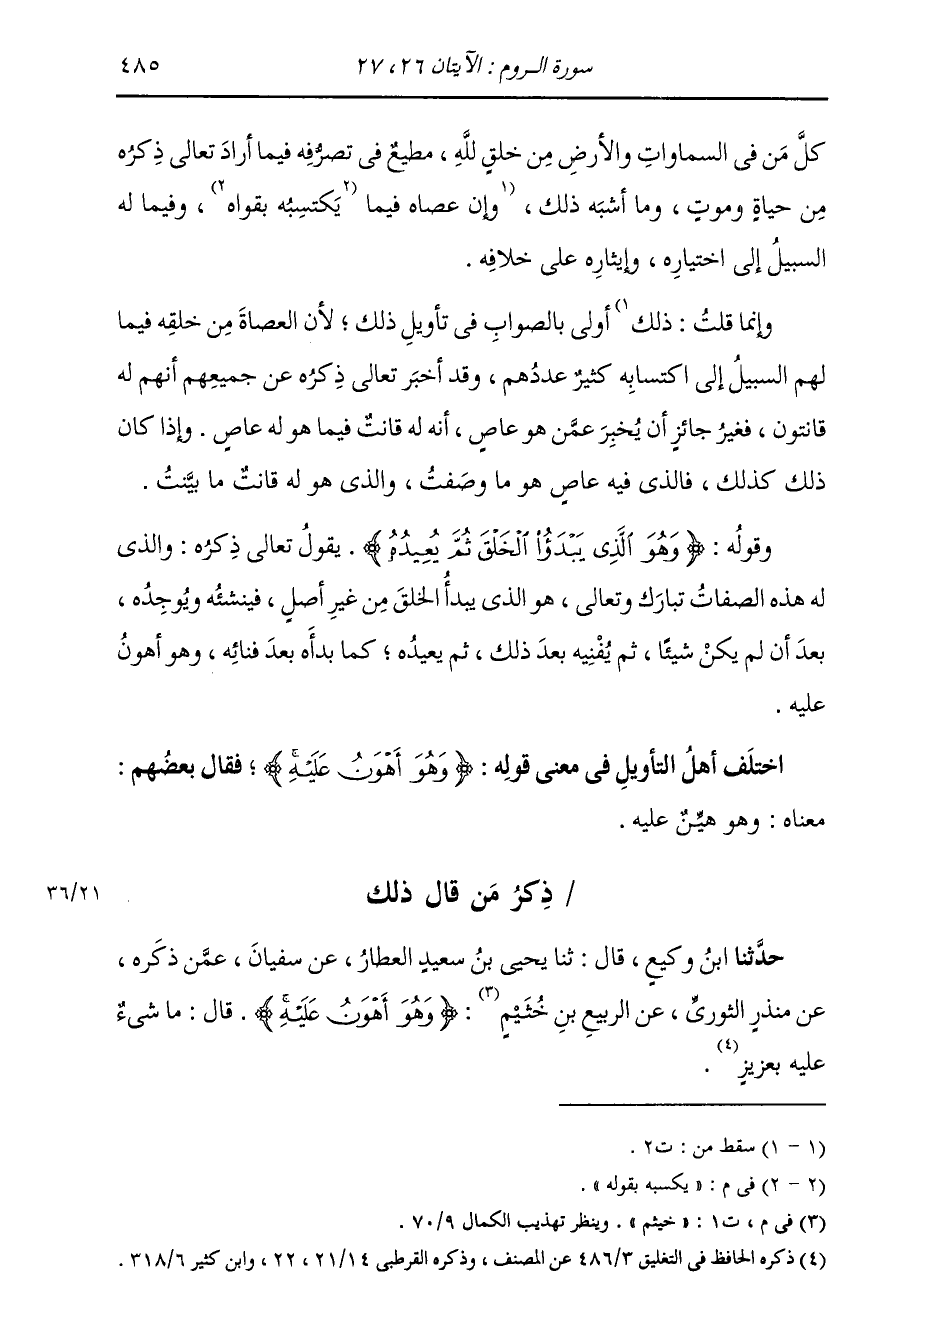 سورة الروم : الآيتان ٢٦ ، ٢٧ ٤٨٥
كلَّ مَن فى السماواتِ والأرضِ مِن خلقٍ للَّهِ ، مطيعٌ فى تصرُّفِه فيما أرادَ تعالى ذِكرُه
مِن حياةٍ وموتٍ ، وما أشبَه ذلك ، (١)وإن عصاه فيما (٢)يَكتسِبُه بقواه(٢) ، وفيما له
السبيلُ إلى اختيارِه ، وإيثارِه على خلافِه .
وإنما قلتُ : ذلك(١) أولى بالصوابِ فى تأويلِ ذلك ؛ لأن العصاةَ مِن خلقِه فيما
لهم السبيلُ إلى اكتسابِه كثيرٌ عددُهم ، وقد أخبَر تعالى ذِكرُه عن جميعِهم أنهم له
قانتون ، فغيرُ جائزٍ أن يُخبِرَ عمَّن هو عاصٍ ، أنه له قانتٌ فيما هو له عاصٍ . وإذا كان
ذلك كذلك ، فالذى فيه عاصٍ هو ما وصَفتُ ، والذى هو له قانتٌ ما بيَّنتُ .
وقولُه : ﴿ وَهُوَ ٱلَّذِى يَبْدَؤُاْ ٱلْخَلْقَ ثُمَّ يُعِيدُهُ ﴾ . يقولُ تعالى ذِكرُه : والذى
له هذه الصفاتُ تبارَك وتعالى ، هو الذى يبدأُ الخلقَ مِن غيرِ أصلٍ ، فينشئُه ويُوجِدُه ،
بعدَ أن لم يكنْ شيئًا ، ثم يُفْنِيه بعدَ ذلك ، ثم يعيدُه ؛ كما بدأَه بعدَ فنائِه ، وهو أهونُ
عليه .
اختلَف أهلُ التأويلِ فى معنى قولِه : ﴿ وَهُوَ أَهْوَنُ عَلَيْهِ ۚ ﴾ ؛ فقال بعضُهم :
معناه : وهو هيِّنٌ عليه .
/ ذِكرُ مَن قال ذلك ٣٦/٢١
حدَّثنا ابنُ وكيعٍ ، قال : ثنا يحيى بنُ سعيدٍ العطارُ ، عن سفيانَ ، عمَّن ذكَره ،
عن منذرٍ الثورىِّ ، عن الربيعِ بنِ خُثَيْمٍ(٣) : ﴿ وَهُوَ أَهْوَنُ عَلَيْهِ ۚ ﴾ . قال : ما شىءٌ
عليه بعزيزٍ(٤) .
(١ - ١) سقط من : ت٢ .
(٢ - ٢) فى م : « يكسبه بقوله » .
(٣) فى م ، ت١ : « خيثم » . وينظر تهذيب الكمال ٧٠/٩ .
(٤) ذكره الحافظ فى التغليق ٤٨٦/٣ عن المصنف ، وذكره القرطبى ٢١/١٤ ، ٢٢ ، وابن كثير ٣١٨/٦ .